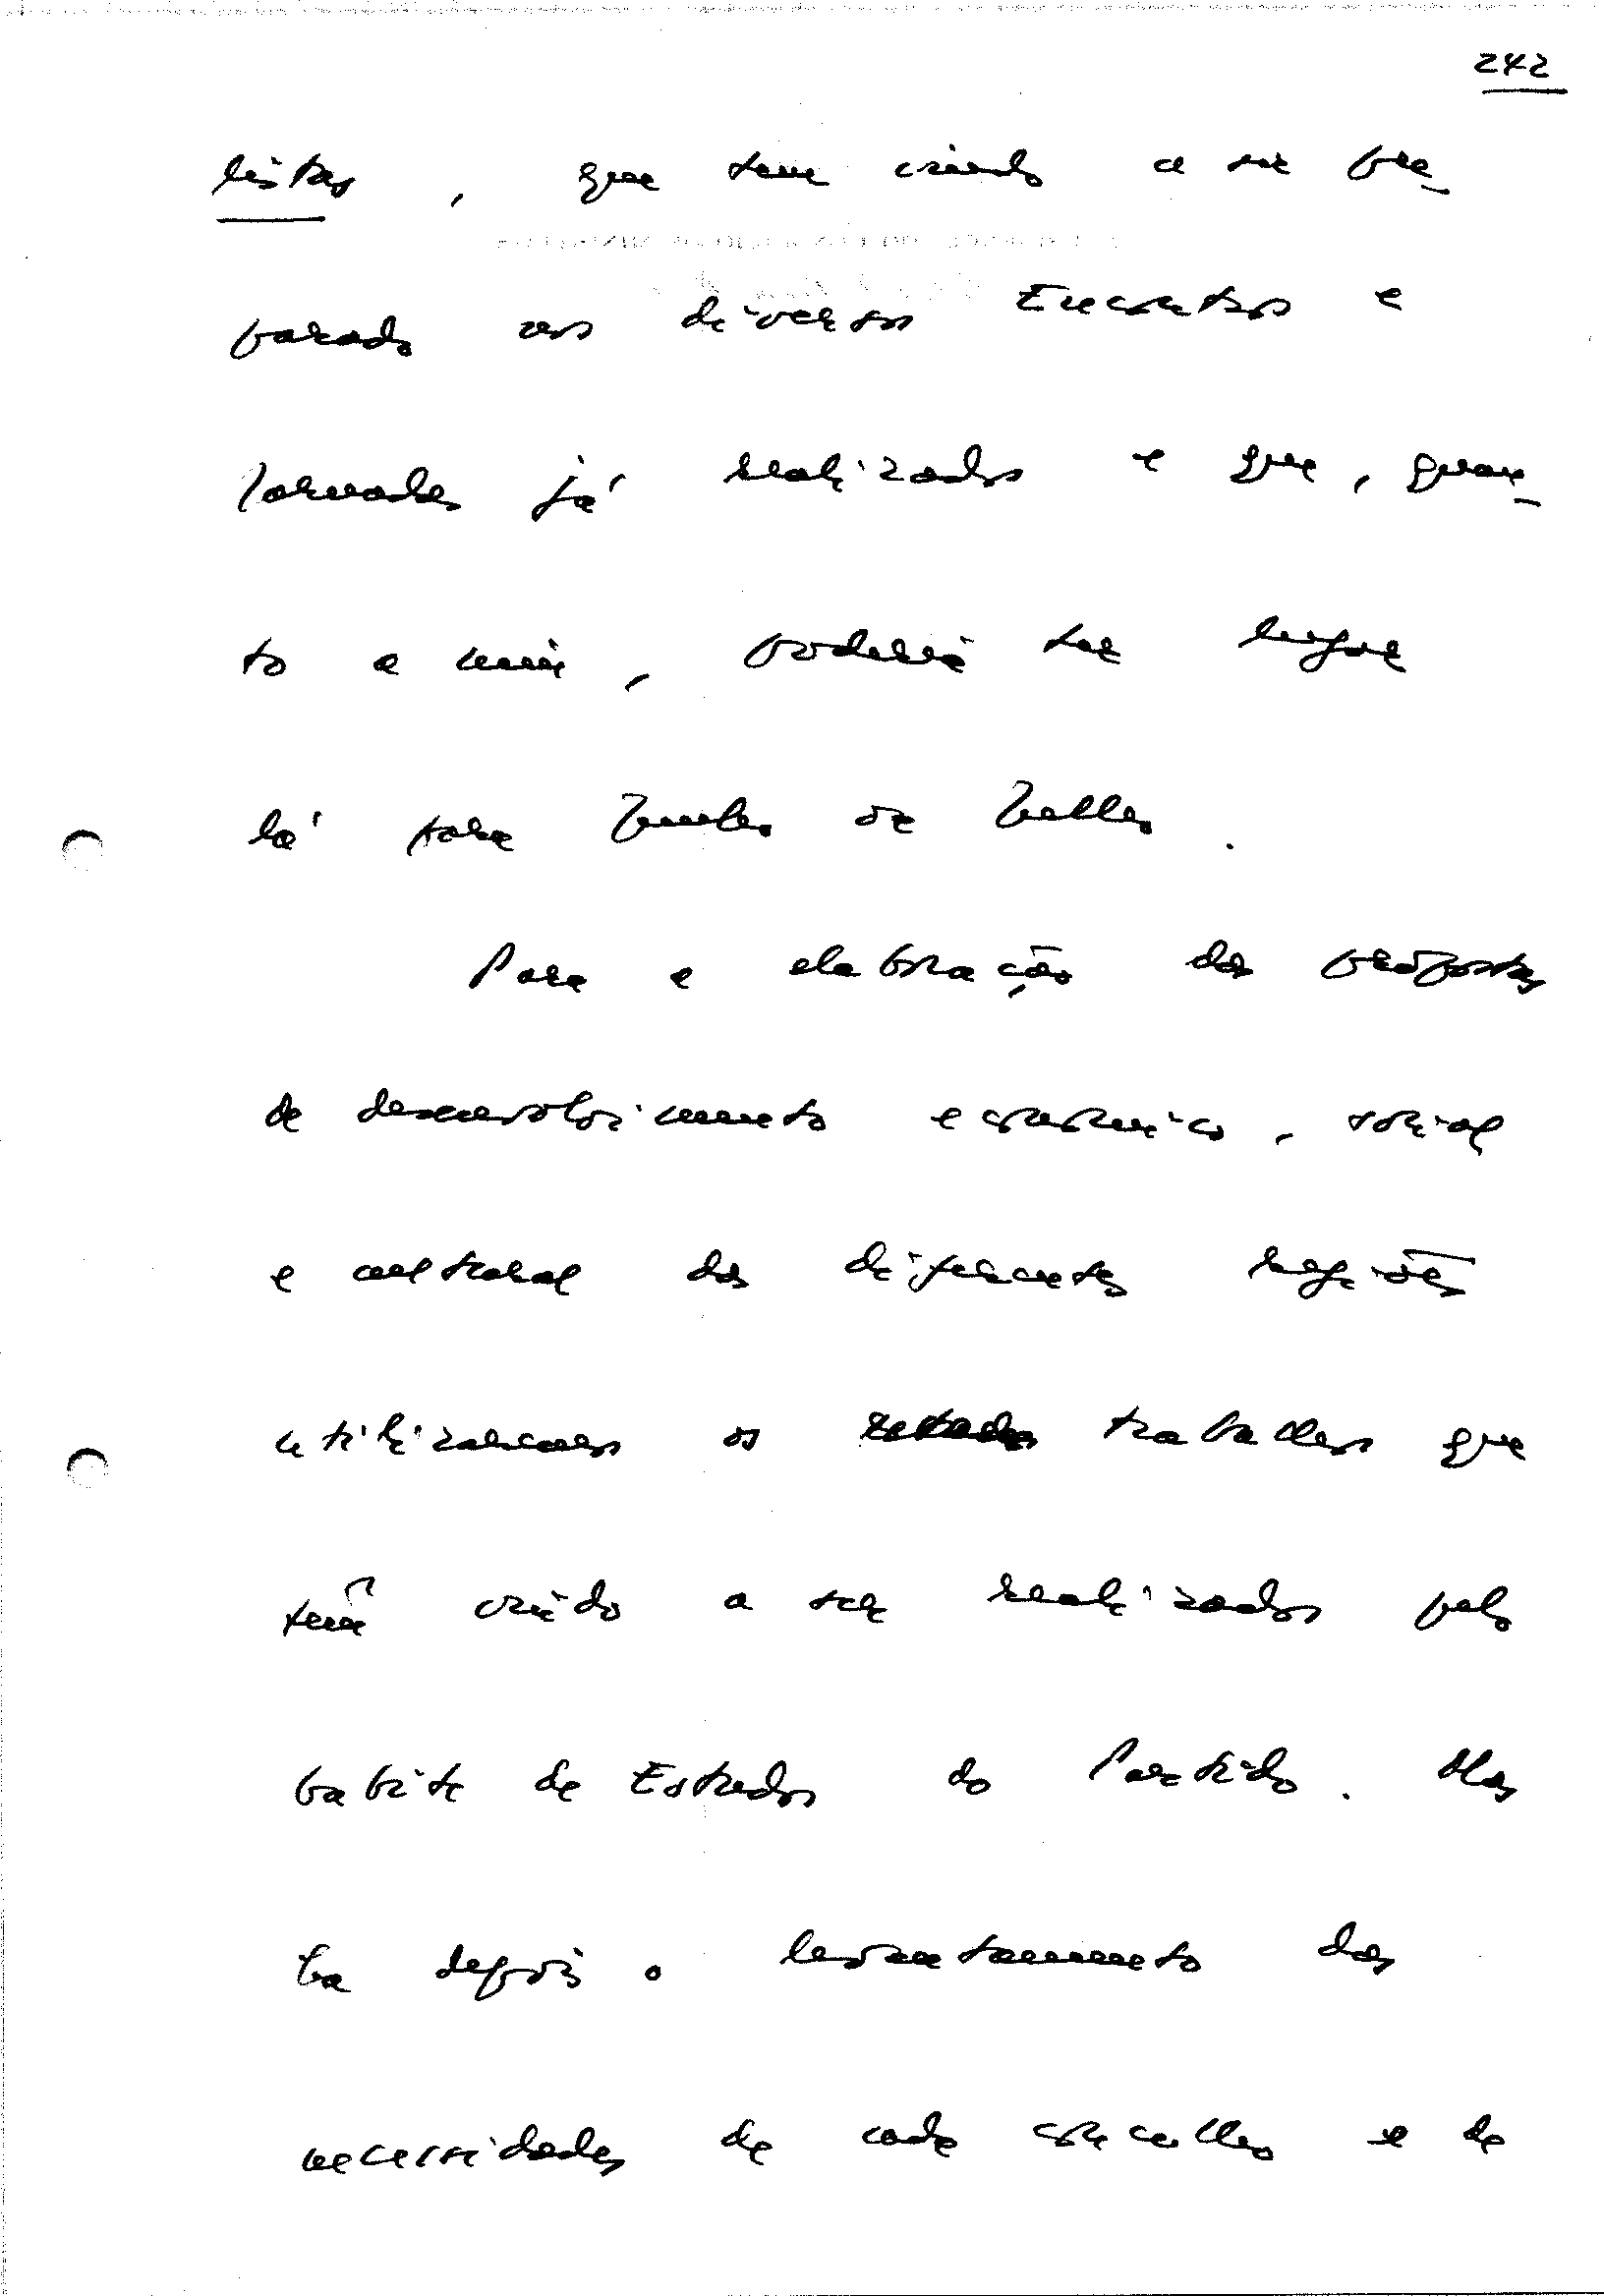 242
listas, que tem vindo a ser pre_
parado nos diversos Encontros e
Jornadas já realizados e que, quan_
to a mim, poderia ter lugar
lá para Junho ou Julho.
Para a elaboração das propostas
de desenvolvimento económico, social
e cultural das diferentes regiões
utilizaremos os trabalhos que
têm vindo a ser realizados pelo
Gabinete de Estudos do Partido. Mas
depois o levantamento das
necessidades de cada concelho e de